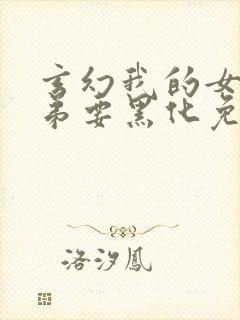 玄幻我的女
弟要黑化免
洛汐鳳